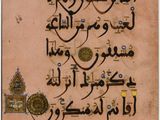 لغيب وهم من الساعة
مشفقون وهذا
ذكر مبرك أنزلنه
أفأنتم له منكرون